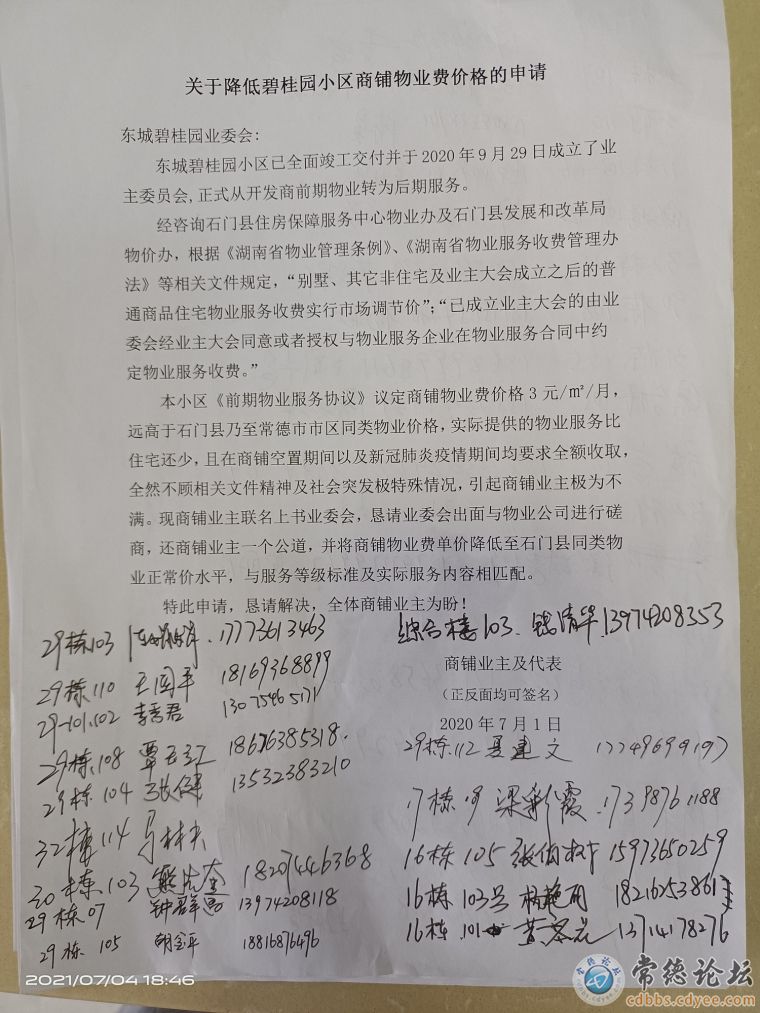 关于降低碧桂园小区商铺物业费价格的申请
东城碧桂园业委会:
东城碧桂园小区已全面竣工交付并于2020年9月29日成立了业
主委员会,正式从开发商前期物业转为后期服务。
经咨询石门县住房保障服务中心物业办及石门县发展和改革局
物价办，根据《湖南省物业管理条例》、《湖南省物业服务收费管理办
法》等相关文件规定，“别墅、其它非住宅及业主大会成立之后的普
通商品住宅物业服务收费实行市场调节价”；“已成立业主大会的由业
委会经业主大会同意或者授权与物业服务企业在物业服务合同中约
定物业服务收费。”
本小区《前期物业服务协议》议定商铺物业费价格3元/㎡/月，
远高于石门县乃至常德市市区同类物业价格，实际提供的物业服务比
住宅还少，且在商铺空置期间以及新冠肺炎疫情期间均要求全额收取，
全然不顾相关文件精神及社会突发极特殊情况，引起商铺业主极为不
满。现商铺业主联名上书业委会，恳请业委会出面与物业公司进行磋
商，还商铺业主一个公道，并将商铺物业费单价降低至石门县同类物
业正常价水平，与服务等级标准及实际服务内容相匹配。
特此申请，恳请解决，全体商铺业主为盼！
综合楼103、钱清华,13974208353
29栋103 17773613463
商铺业主及代表
（正反面均可签名）
2020年7月1日
29栋110 王国平 18169368899
29-101,102 李秀君 13075465171
29栋108 覃玉红 18676385318
29栋104 张健 13532383210
32栋114
30栋103 18207446368
29栋07 13974208118
29栋105 胡金平 18816876496
29栋112 夏建文
17栋 梁彩霞 17398761188
16栋105 15973650259
16栋103号 杨艳丽
16栋101 13714178276
2021/07/04 18:46
常德论坛
cdbbs.cdyee.com